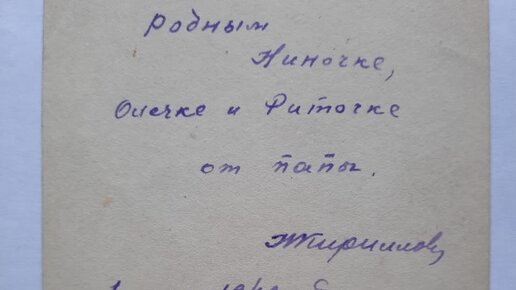 Родным
Ниночке,
Олечке и Риточке
от папы.